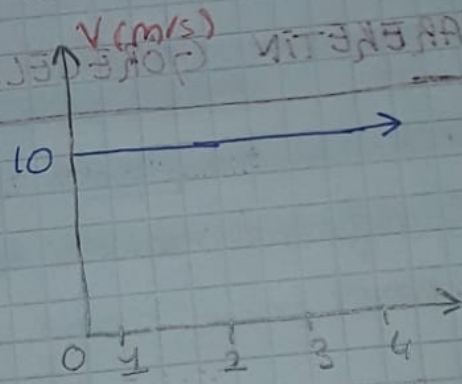 V (m/s)
10
0 1 2 3 4